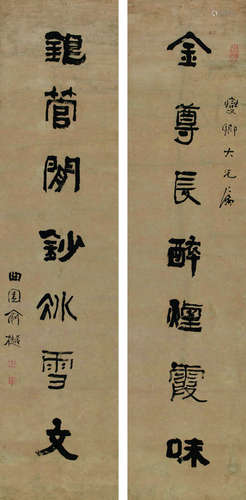 燮卿大兄屬
金尊長醉煙霞味
銀管閒鈔冰雪文
曲園俞樾